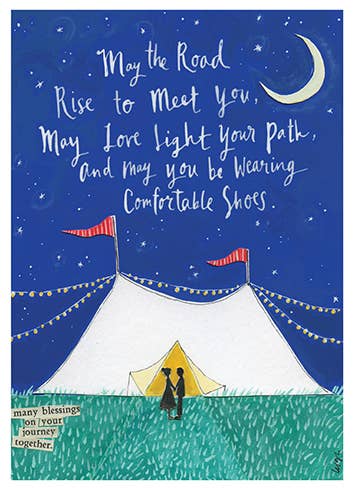 May the Road
Rise to Meet You,
May Love Light Your Path,
and may you be Wearing
Comfortable Shoes.
many blessings
on your
journey
together.